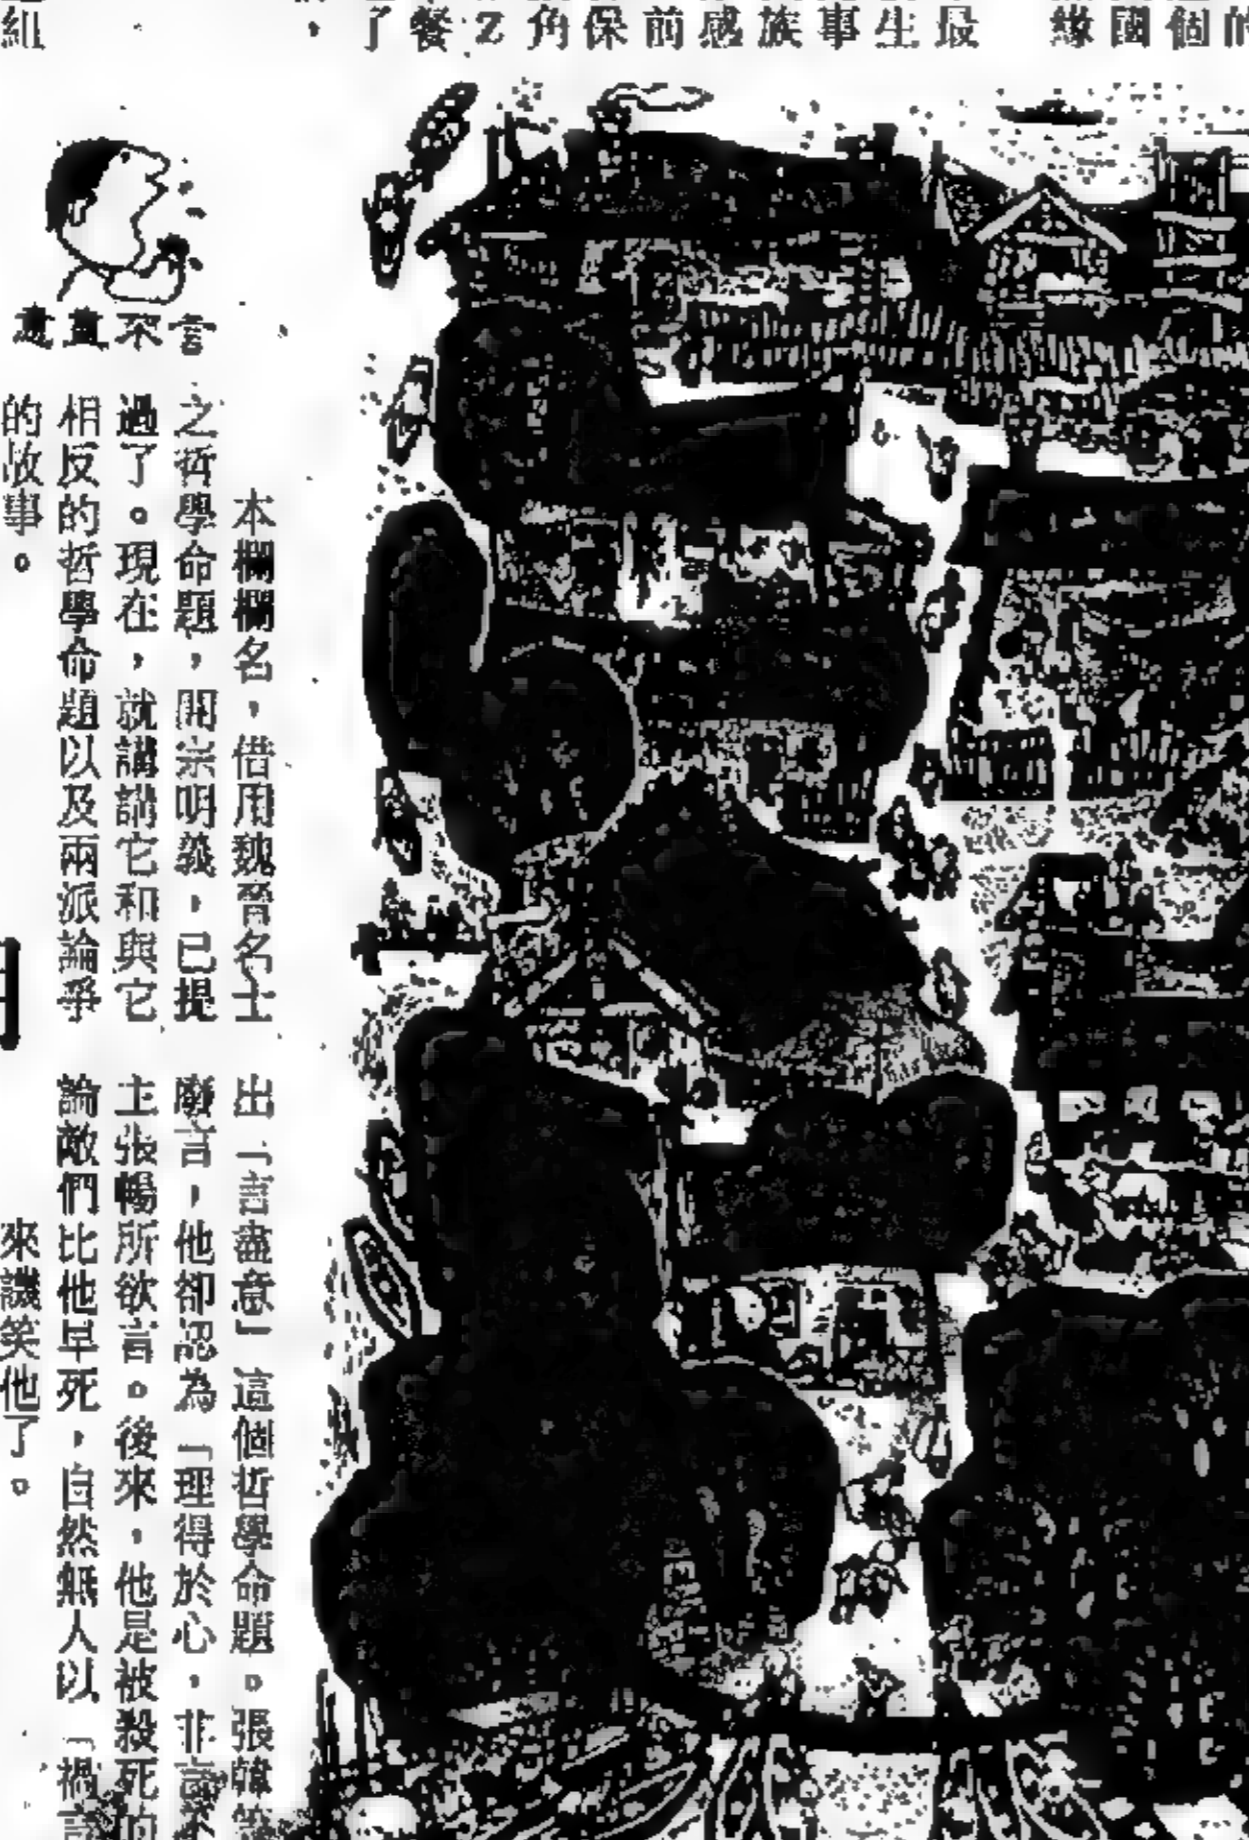 最
生
事
族
感
前
保
角
Z
餐
了
，
組
的
個
國
緣
言不盡意
本欄欄名，借用魏晉名士
之哲學命題，開宗明義，已提
過了。現在，就講講它和與它
相反的哲學命題以及兩派論爭
的故事。
出「言盡意」這個哲學命題。張韓
廢言，他卻認為「理得於心，非言
主張暢所欲言。後來，他是被殺死的
論敵們比他早死，自然無人以「禍
來譏笑他了。